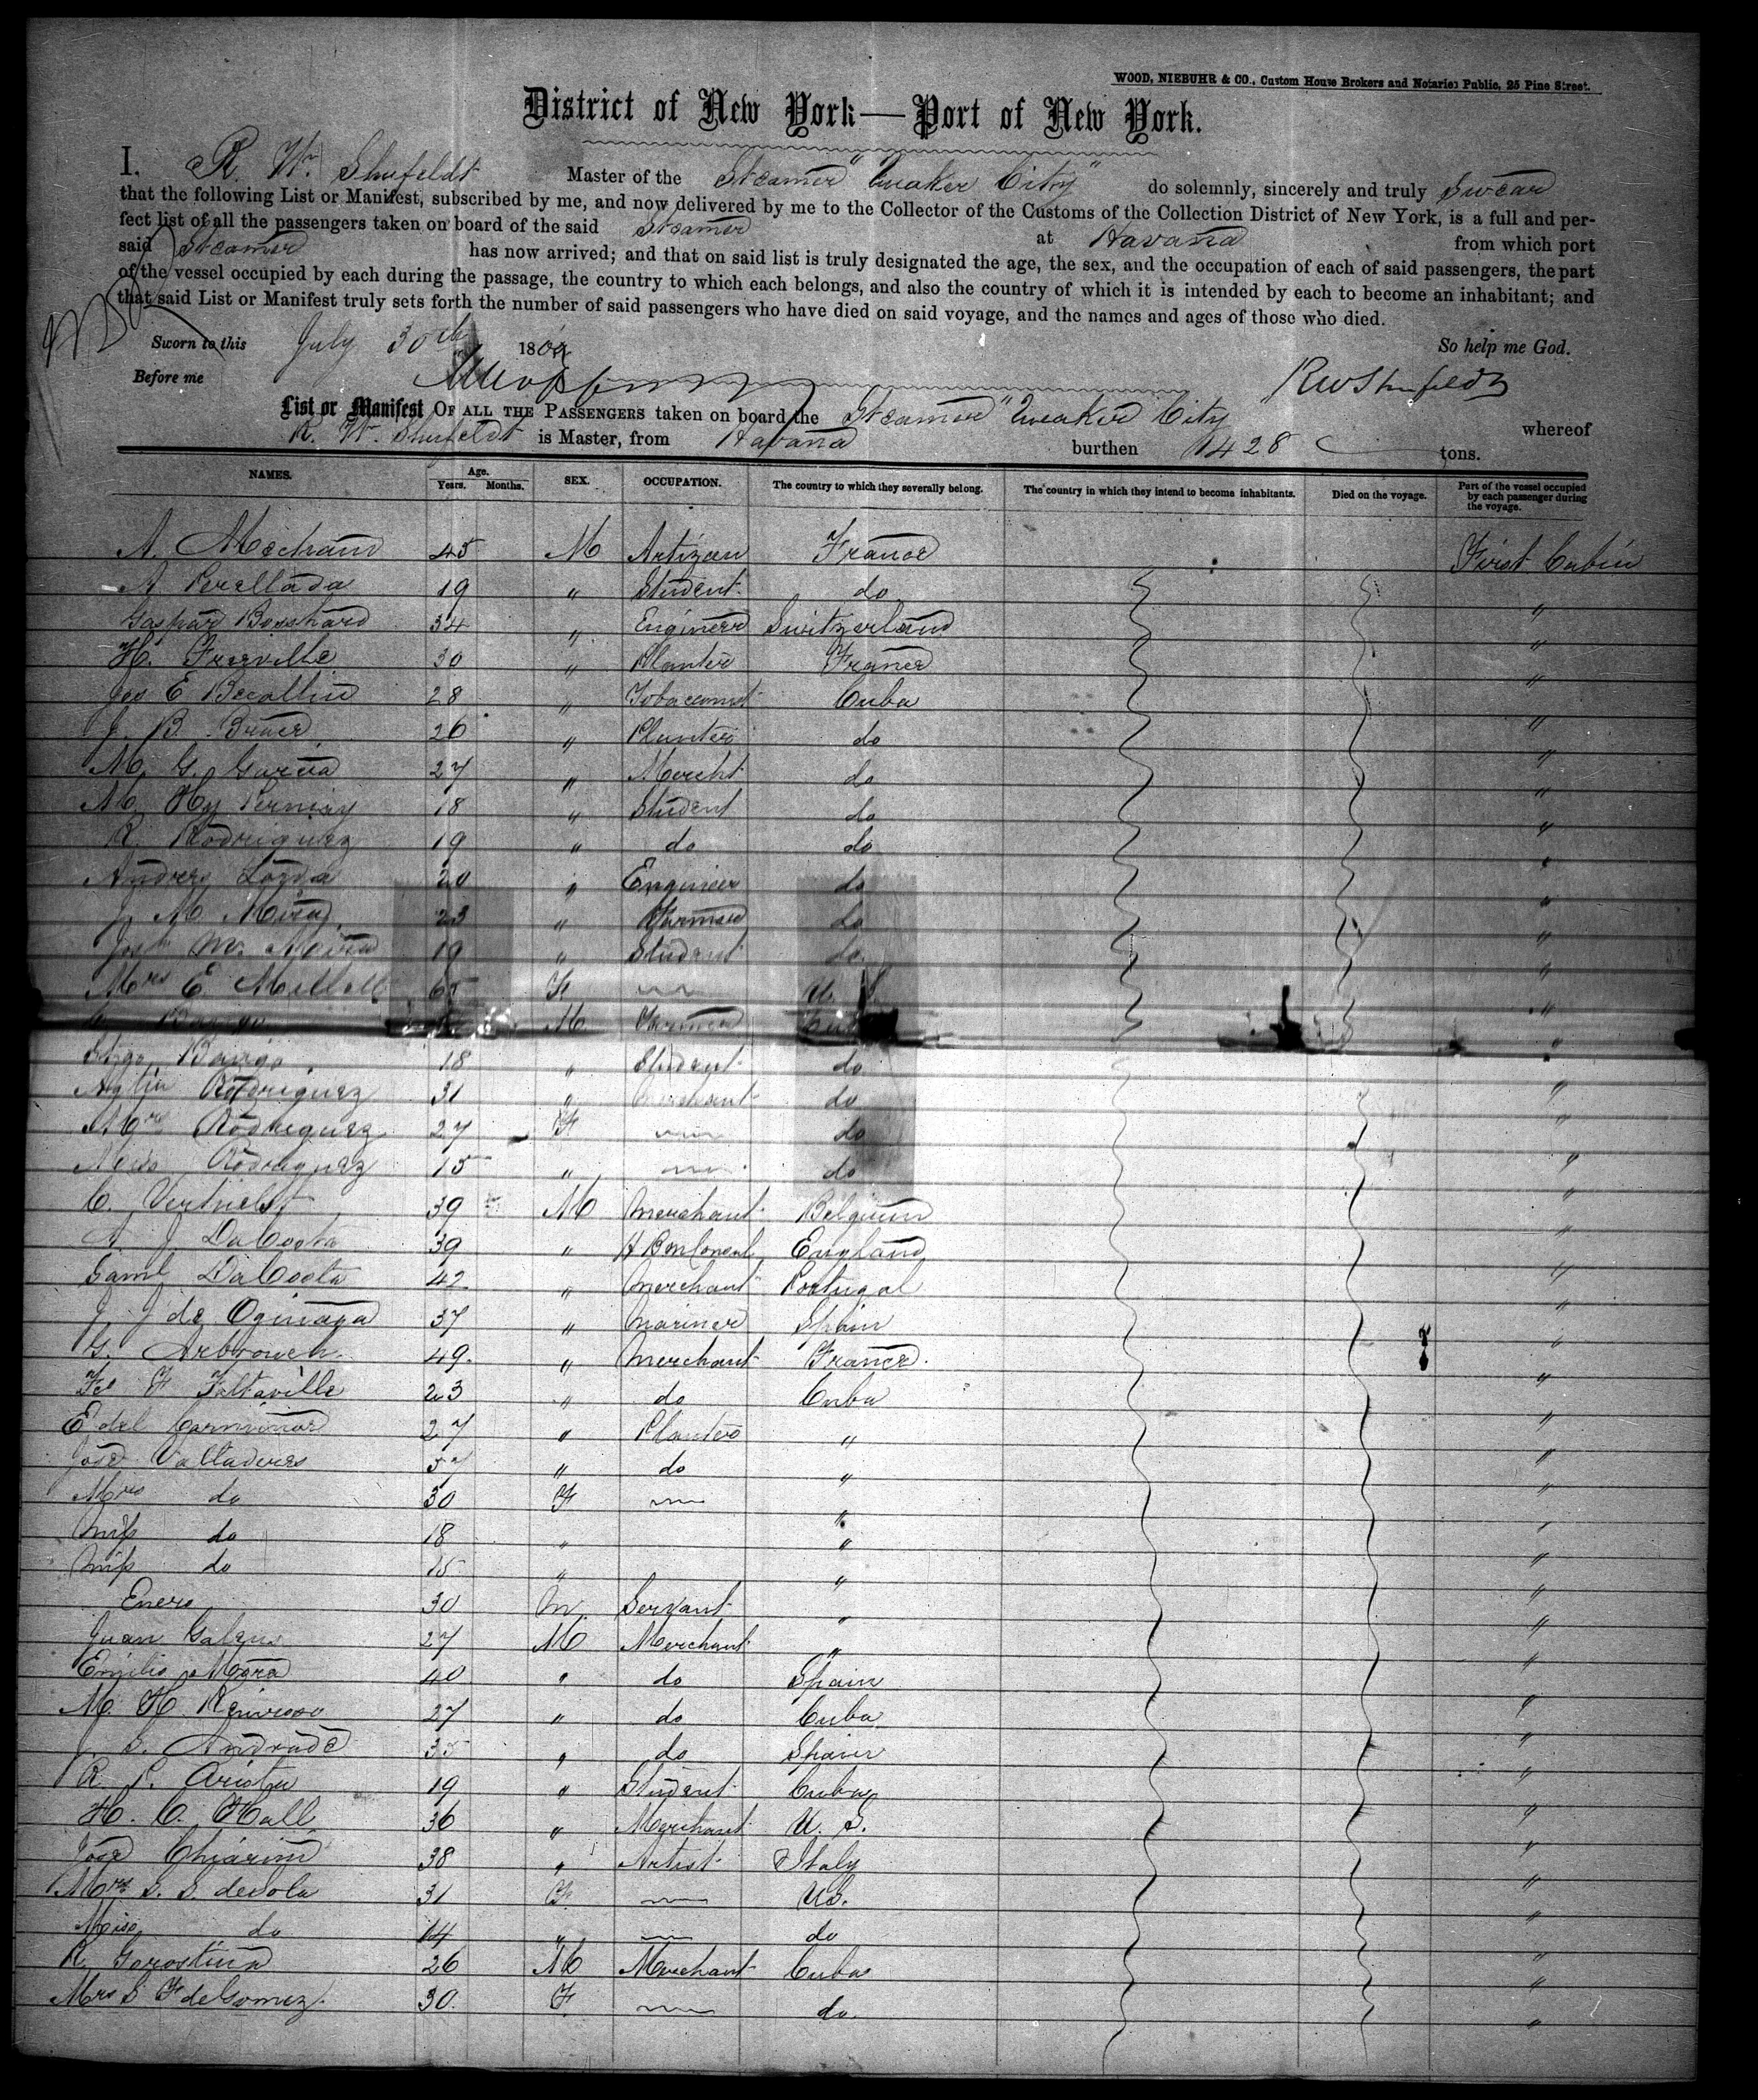 WOOD, NIEBUHR & CO., Custom House Brokers and Notaries Public, 25 Pine Street.
District of New York—Port of New York.
I, R. W. Shufeldt Master of the Steamer "Quaker City" do solemnly, sincerely and truly Swear
that the following List or Manifest, subscribed by me, and now delivered by me to the Collector of the Customs of the Collection District of New York, is a full and per-
fect list of all the passengers taken on board of the said Steamer at Havana from which port
said Steamer has now arrived; and that on said list is truly designated the age, the sex, and the occupation of each of said passengers, the part
of the vessel occupied by each during the passage, the country to which each belongs, and also the country of which it is intended by each to become an inhabitant; and
that said List or Manifest truly sets forth the number of said passengers who have died on said voyage, and the names and ages of those who died.
Sworn to this July 30th 186 So help me God.
Before me RW Shufeldt
List or Manifest OF ALL THE PASSENGERS taken on board the Steamer "Quaker City whereof
R. W. Shufeldt is Master, from Havana burthen 1428 tons.
NAMES. Age. Years. Months. SEX. OCCUPATION. The country to which they severally belong. The country in which they intend to become inhabitants. Died on the voyage. Part of the vessel occupied by each passenger during the voyage.
A. 45 M Artizan France First Cabin
A Perellada 19 " Student do "
Gaspard Bosshard 34 " Engineer Switzerland "
H. Freville 30 " Planter France "
Jos E 28 " Tobacconist Cuba "
J. B. 26 " Planter do "
M G. Garcia 27 " Mercht do "
M Hy 18 " Student do "
R. Rodriguez 19 " do do "
Andres 20 " Engineer do "
J. M 23 " Farmer do "
Jos M. 19 " Student do "
Mrs E 65 F U. S. "
M Farmer "
18 " Student do "
Rodriguez 31 " Merchant do "
Mrs Rodriguez 27 F do "
Miss Rodriguez 15 " do "
C. 39 M Merchant Belgium "
A J DaCosta 39 " England "
Saml DaCosta 42 " Merchant Portugal "
J. J de Oginaga 37 " Mariner Spain "
G. 49. " Merchant France. "
F 23 " do Cuba "
E del 27 " Planter " "
José Valladeres 57 " do " "
Mrs do 30 F " "
Miss do 18 " " "
Miss do 15 " " "
Enero 30 M. Servant " "
Juan 27 M Merchant " "
Emilio Mora 40 " do Spain "
M. H. 27 " do Cuba "
J. S. Andrade 35 " do Spain "
R. P. 19 " Student Cuba "
H. C. Hall 36 " Merchant U. S. "
José Chiarini 38 " Artist Italy "
Mrs S. S. deSola 31 F US. "
Miss do 14 " do "
R Gorostiza 26 M Merchant Cuba "
Mrs S F deGomez. 30. F do. "